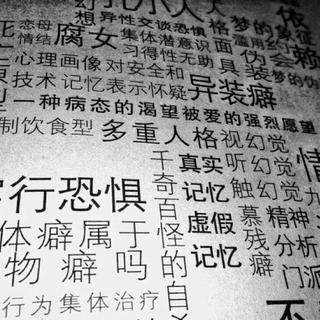 幻
想
异性交谈恐惧
梦的象征
恋母
情结
腐女
集体潜意识面
滥用药
依
赖
习得性无助具
伪
装
梦的伪
心理画像
对安全和
异装癖
技术
记忆表示怀疑
一种病态的渴望被爱的强烈愿望
制饮食型
多重人格
视幻觉
听幻觉
触幻觉
千奇百怪的自杀
真实
记忆
虚假
记忆
行恐惧
体癖属于
物癖吗
慕残癖
精神
分析
门派
情
行为集体治疗
不